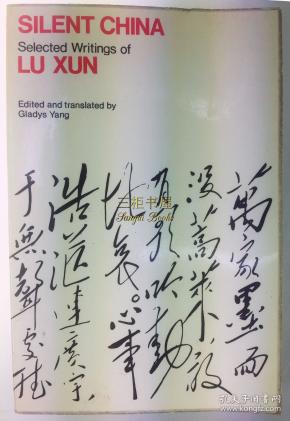 SILENT CHINA
Selected Writings of
LU XUN
Edited and translated by
Gladys Yang
三柜书屋
Sangui Books
萬家墨面
沒蒿萊敢
有歌吟動
地哀。心事
浩茫連廣宇
于無聲處聽
孔夫子旧书网